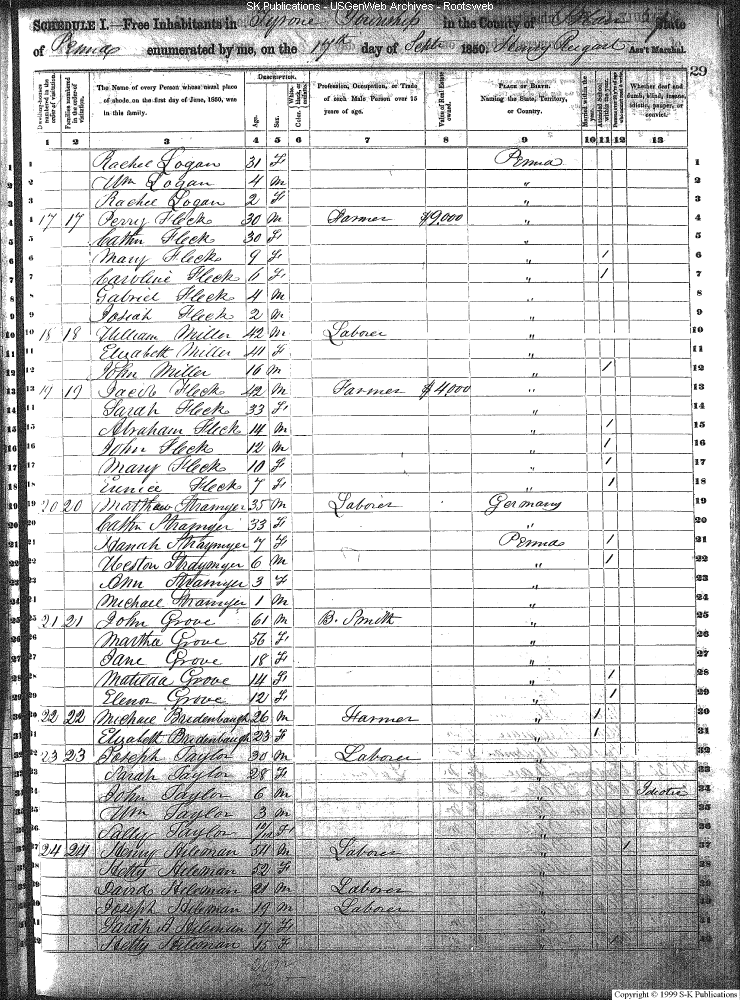 SK Publications - USGenWeb Archives - Rootsweb
SCHEDULE I.—Free Inhabitants in Tyrone Township in the County of Blair State
of Penna enumerated by me, on the 17th day of Sept 1850. Henry Ass't Marshal.
29
Dwelling-houses numbered in the order of visitation. Families numbered in the order of visitation. The Name of every Person whose usual place of abode on the first day of June, 1850, was in this family. Description. Age. Sex. Color. White, black, or mulatto. Profession, Occupation, or Trade of each Male Person over 15 years of age. Value of Real Estate owned. Place of Birth. Naming the State, Territory, or Country. Married within the year. Attended School within the year. Whether deaf and dumb, blind, insane, idiotic, pauper, or convict.
1 2 3 4 5 6 7 8 9 10 11 12 13
1 Rachel Logan 31 F Penna 1
2 Wm Logan 4 M " 2
3 Rachel Logan 2 F " 3
4 17 17 Perry Fleck 30 M Farmer $9,000 " 4
5 Cathn Fleck 30 F " 5
6 Mary Fleck 9 F " / 6
7 Caroline Fleck 6 F " / 7
8 Gabriel Fleck 4 M " 8
9 Josiah Fleck 2 M " 9
10 18 18 William Miller 42 M Laborer " 10
11 Elizabeth Miller 41 F " 11
12 John Miller 16 M " / 12
13 19 19 Jacob Fleck 42 M Farmer $4,000 " 13
14 Sarah Fleck 33 F " 14
15 Abraham Fleck 14 M " / 15
16 John Fleck 12 M " / 16
17 Mary Fleck 10 F " / 17
18 Eunice Fleck 7 F " / 18
19 20 20 Mathew Stramyer 35 M Laborer Germany 19
20 Cathn Stramyer 33 F " 20
21 Hanah Straymyer 7 F Penna / 21
22 Weston Straymyer 6 M " / 22
23 Ann Stramyer 3 F " 23
24 Michael Stramyer 1 M " 24
25 21 21 John Grove 61 M B. Smith " 25
26 Martha Grove 56 F " 26
27 Jane Grove 18 F " 27
28 Matilda Grove 14 F " / 28
29 Elenor Grove 12 F " / 29
30 22 22 Michael Bridenbaugh 26 M Farmer " / 30
31 Elizabeth Bridenbaugh 23 F " / 31
32 23 23 Joseph Taylor 30 M Laborer " 32
33 Sarah Taylor 28 F " 33
34 John Taylor 6 M " Idiotic 34
35 Wm Taylor 3 M " 35
36 Sally Taylor 10/12 F " 36
37 24 24 Henry Hileman 51 M Laborer " / 37
38 Hetty Hileman 52 F " 38
39 David Hileman 21 M Laborer " 39
40 Joseph Hileman 19 M Laborer " 40
41 Sarah A Hileman 17 F " 41
42 Hetty Hileman 15 F " / 42
Copyright © 1999 S-K Publications